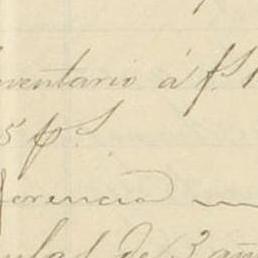 inventario á f.s 1
5 p.s
ferencia
de 3 añ